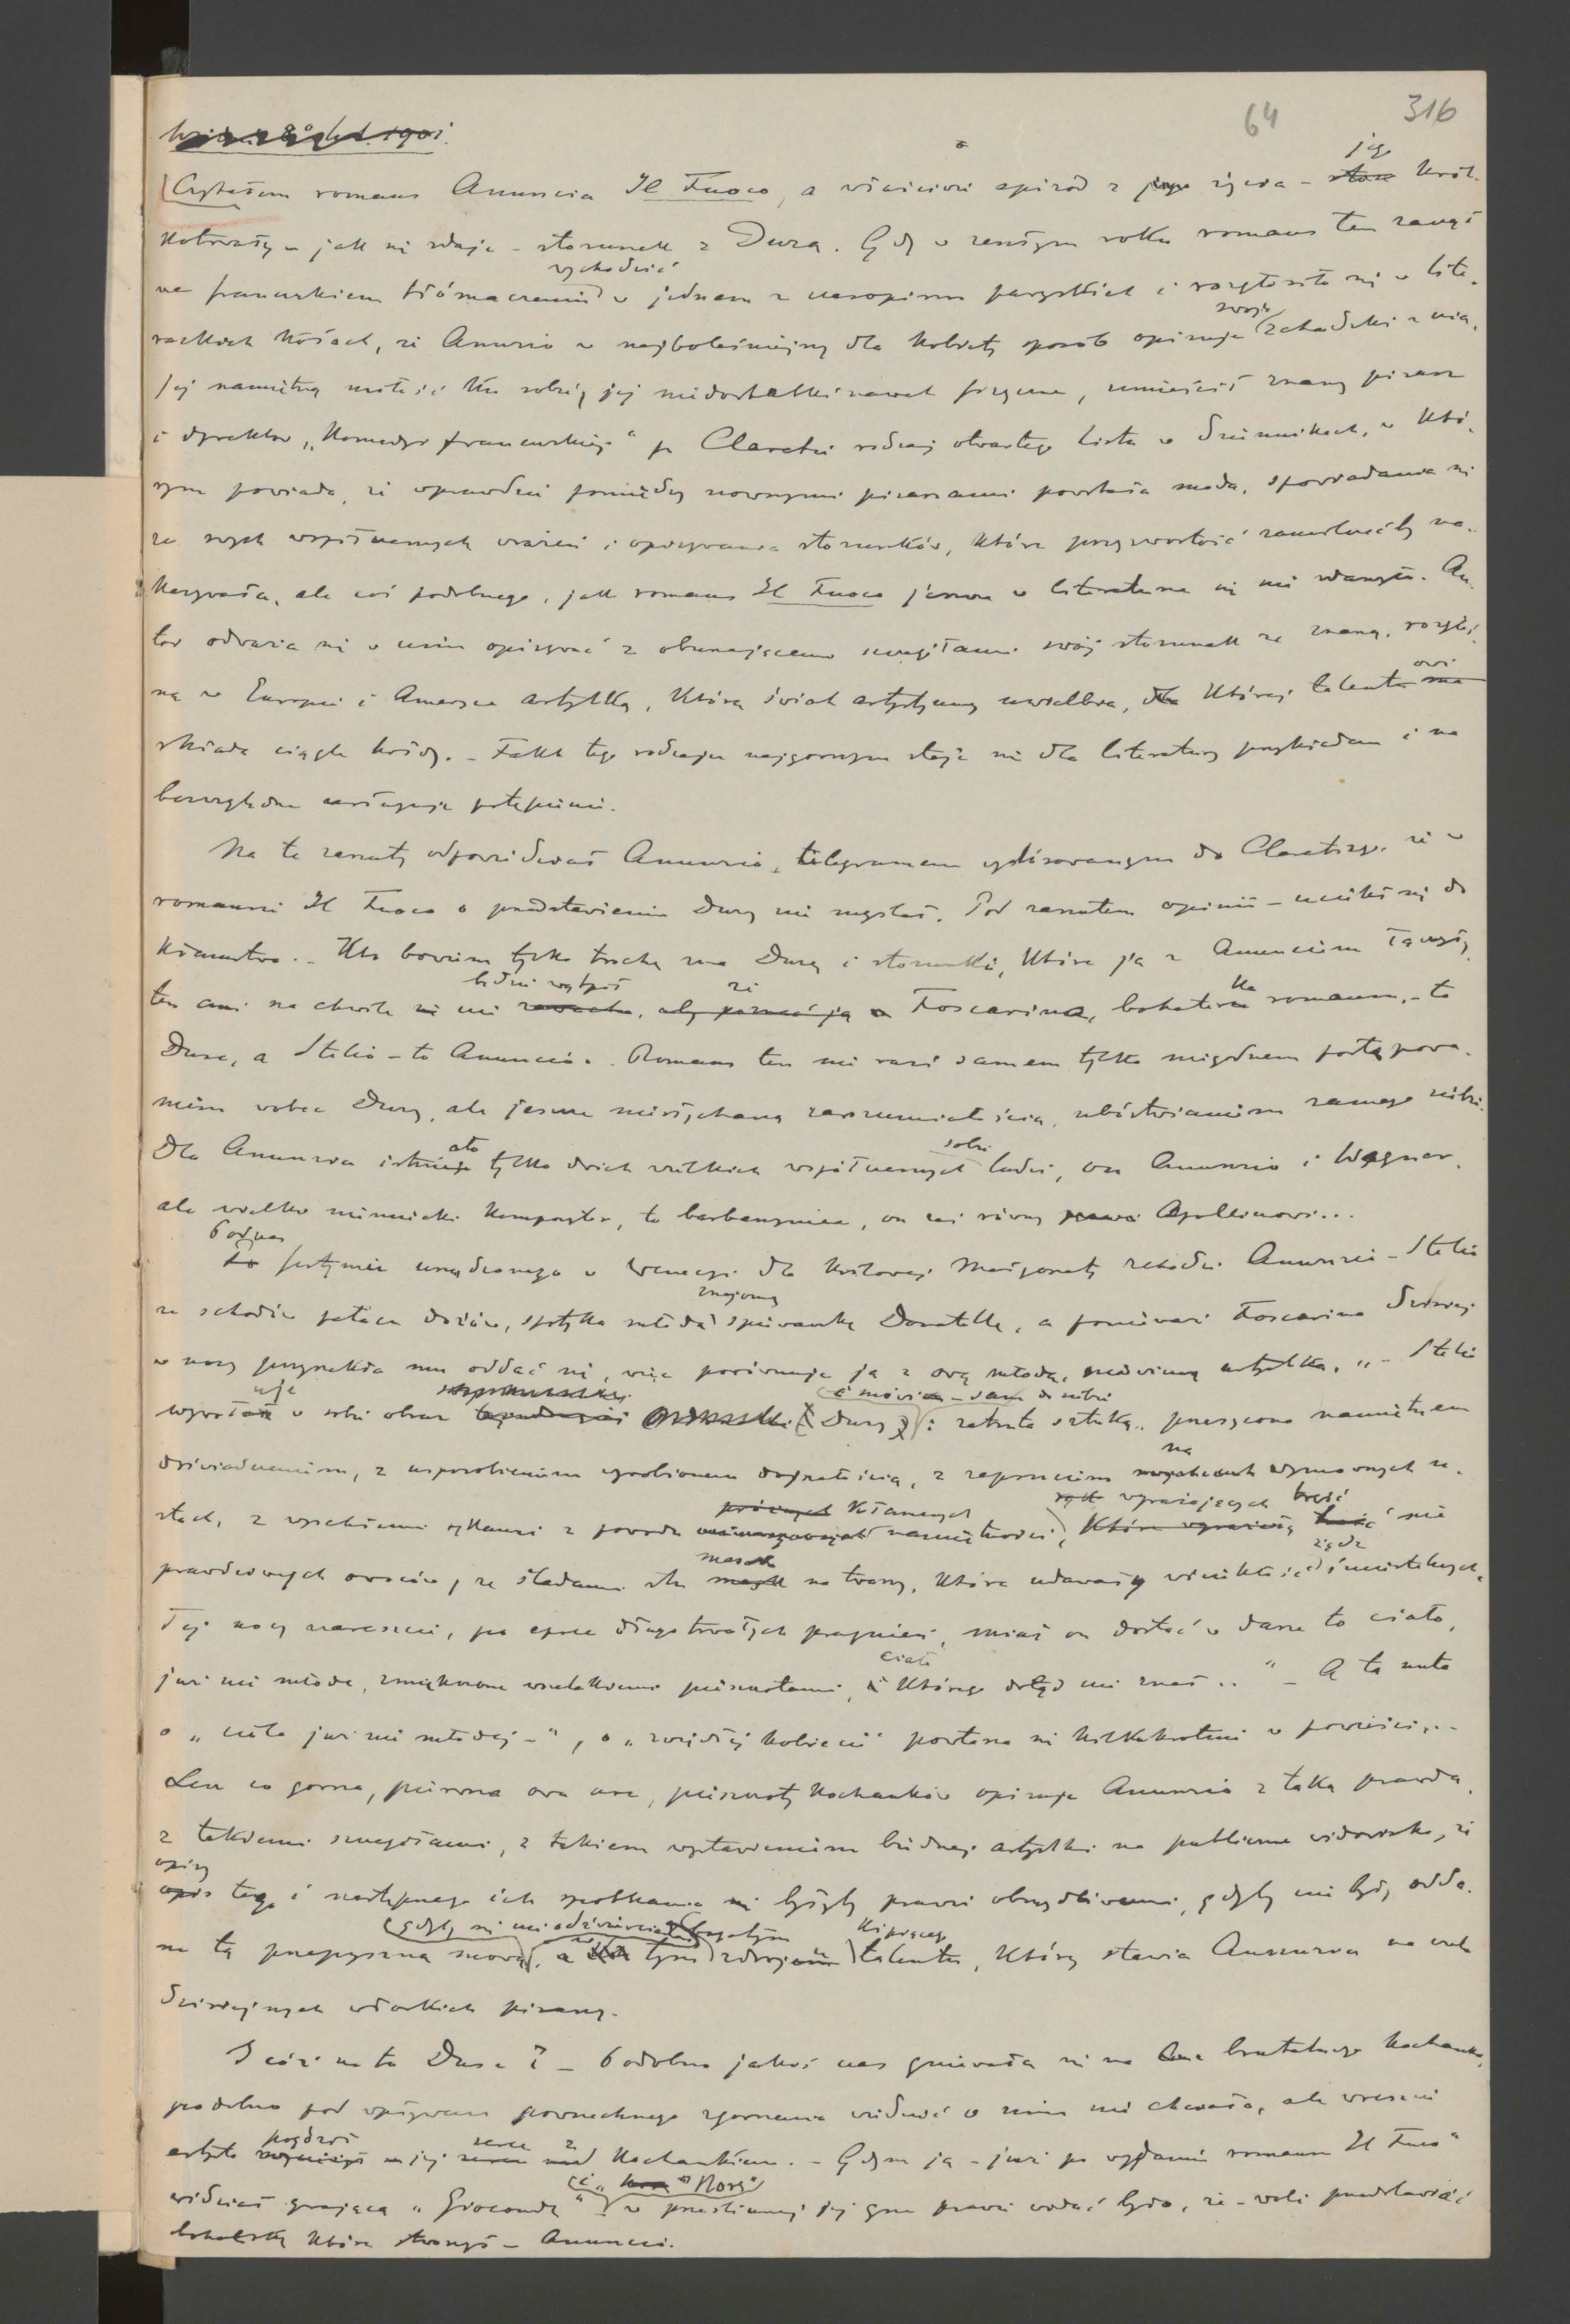 64 316
1901.
Czytałem romans Anunzia Il Fuoco, a właściwie epizod z jego życia – jego krót-
kotrwały – jak się zdaje – stosunek z Duzą. Gdy w zeszłym roku romans ten zaczął
we francuskiem tłómaczeniu wychodzić w jednem z czasopism paryskich i rozgłosiło się w lite-
rackich kołach, że Anunzio w najboleśniejszy dla kobiety sposób opisuje swoje schadzki z nią,
jej namiętną miłość ku sobie, jej niedostatki nawet fizyczne, umieścił znany pisarz
i dyrektor „Komedyi francuskiej" p. Claretie rodzaj otwartego listu w dziennikach, w któ-
rym powiada, że wprawdzie pomiędzy nowszymi pisarzami powstała moda, spowiadania się
ze swych współczesnych wrażeń i opisywania stosunków, które przyzwoitość zamilczećby na-
kazywała, ale coś podobnego, jak romans Il Fuoco jeszcze w literaturze się nie zdarzyło. Au-
tor odważa się w nim opisywać z oburzającemi szczegółami swój stosunek ze znaną, rozgłoś-
ną w Europie i Ameryce artystką, którą świat artystyczny uwielbia, której talentowi
składa ciągle hołdy. – Fakt tego rodzaju najgorszym staje się dla literatury przykładem i na
bezwzględne zasługuje potępienie.
Na te zarzuty odpowiedział Anunzio, telegramem wystosowanym do Claretiego, że w
romansie Il Fuoco o przedstawieniu Duzy nie myślał. Pod zarzutem opinii – uciekł się do
kłamstwa. – Kto bowiem tylko trochę zna Duzę i stosunki, które ją z Anunciem łączyły,
ten ani na chwilę nie będzie wątpił że Foscarina, bohaterka romansu, – to
Duse, a Stelio – to Anuncio. Romans ten nie razi samem tylko niegodnem postępowa-
niem wobec Duzy, ale jeszcze niesłychaną zarozumiałością, ubóstwianiem samego siebie.
Dla Anunzia istniało tylko dwóch wielkich współczesnych sobie ludzi, on Anunzio i Wagner,
ale wielki niemiecki kompozytor, to barbarzyniec, on zaś równy Apollinowi...
Podczas festynu urządzonego w Wenecyi dla królowej Małgorzaty schodzi Anunzio – Stelio
ze schodów pałacu dożów, spotyka młodą znajomą śpiewaczkę Donatellę, a ponieważ Foscarina dzisiaj
w nocy przyrzekła mu oddać się, więc porównuje ją z ową młodą, niewinną artystką. „– Stelio
wywołuje w sobie obraz Duzy i mówi – sam do siebie: zatruta sztuką, przesycona namiętnem
doświadczeniem, z usposobieniem wyrobionem dojrzałością, z zepsuciem na wymownych u-
stach, z wyschłemi rękami z powodu kłamanych namiętności, wyrażających treść nie
prawdziwych owoców, ze śladami stu masek na twarzy, które udawały wielkość żądz śmiertelnych.
Tej nocy nareszcie, po epoce długotrwałych pragnień, miał on dostać w darze to ciało,
już nie młode, zmiękczone wszelakiemi pieszczotami, ciało którego dotąd nie znał .. " – A ta nuta
o „ciele już nie młodej –", o „zwiędłej kobiecie" powtarza się kilkakrotnie w powieści...
Lecz co gorsza, pierwszą ową noc, pieszczoty kochanków opisuje Anunzio z taką prawdą,
z takiemi szczegółami, z takiem wystawieniem biednej artystki na publiczne widowisko, że
opisy tego i następnego ich spotkania byłyby prawie obrzydliwemi, gdyby nie były odda-
ne tą przepyszną mową, gdyby się nie odzwierciedlał w tym zdroju kipiącego talentu, który stawia Anunzia na czele
dzisiejszych włoskich pisarzy.
I cóż na to Duse? – Podobno jakiś czas gniewała się na brutalnego kochanka,
podobno pod wpływem powszechnego zgorszenia widzieć o nim nie chciała, ale wreszcie
artysta pogodził jej serce z kochankiem. – Gdym ją – już po wydaniu romansu Il Fuoco"
widział grającą „Giocondę" i „Norę" w prześlicznej jej grze prawie widać było, że – woli przedstawiać
bohaterkę którą stworzył – Anuncio.